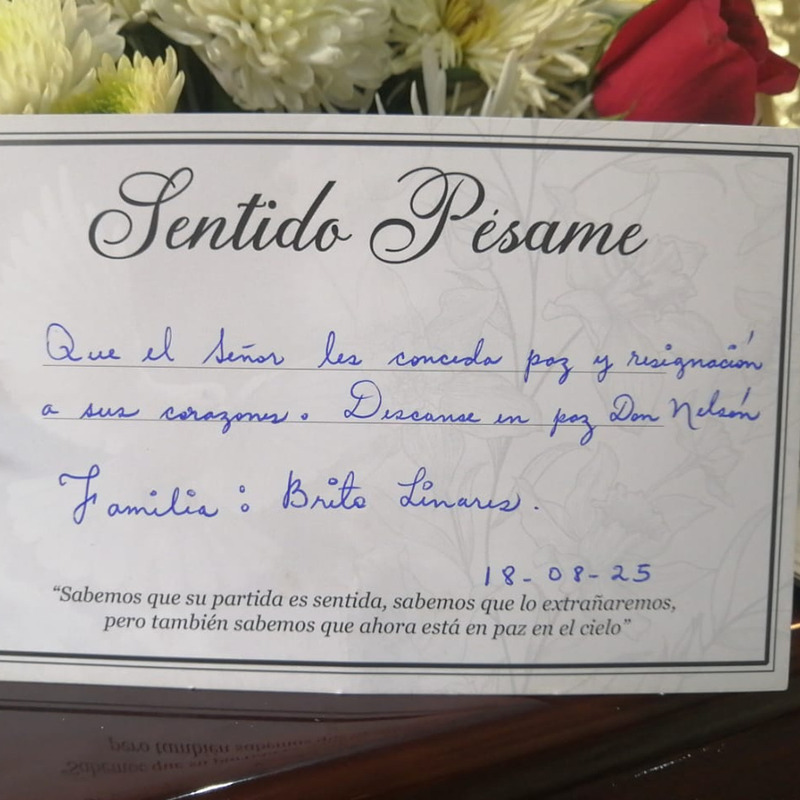 Sentido Pésame
Que el Señor les conceda paz y resignación
a sus corazones. Descanse en paz Don Nelsón
Familia: Brito Linares.
18-08-25
“Sabemos que su partida es sentida, sabemos que lo extrañaremos,
pero también sabemos que ahora está en paz en el cielo”